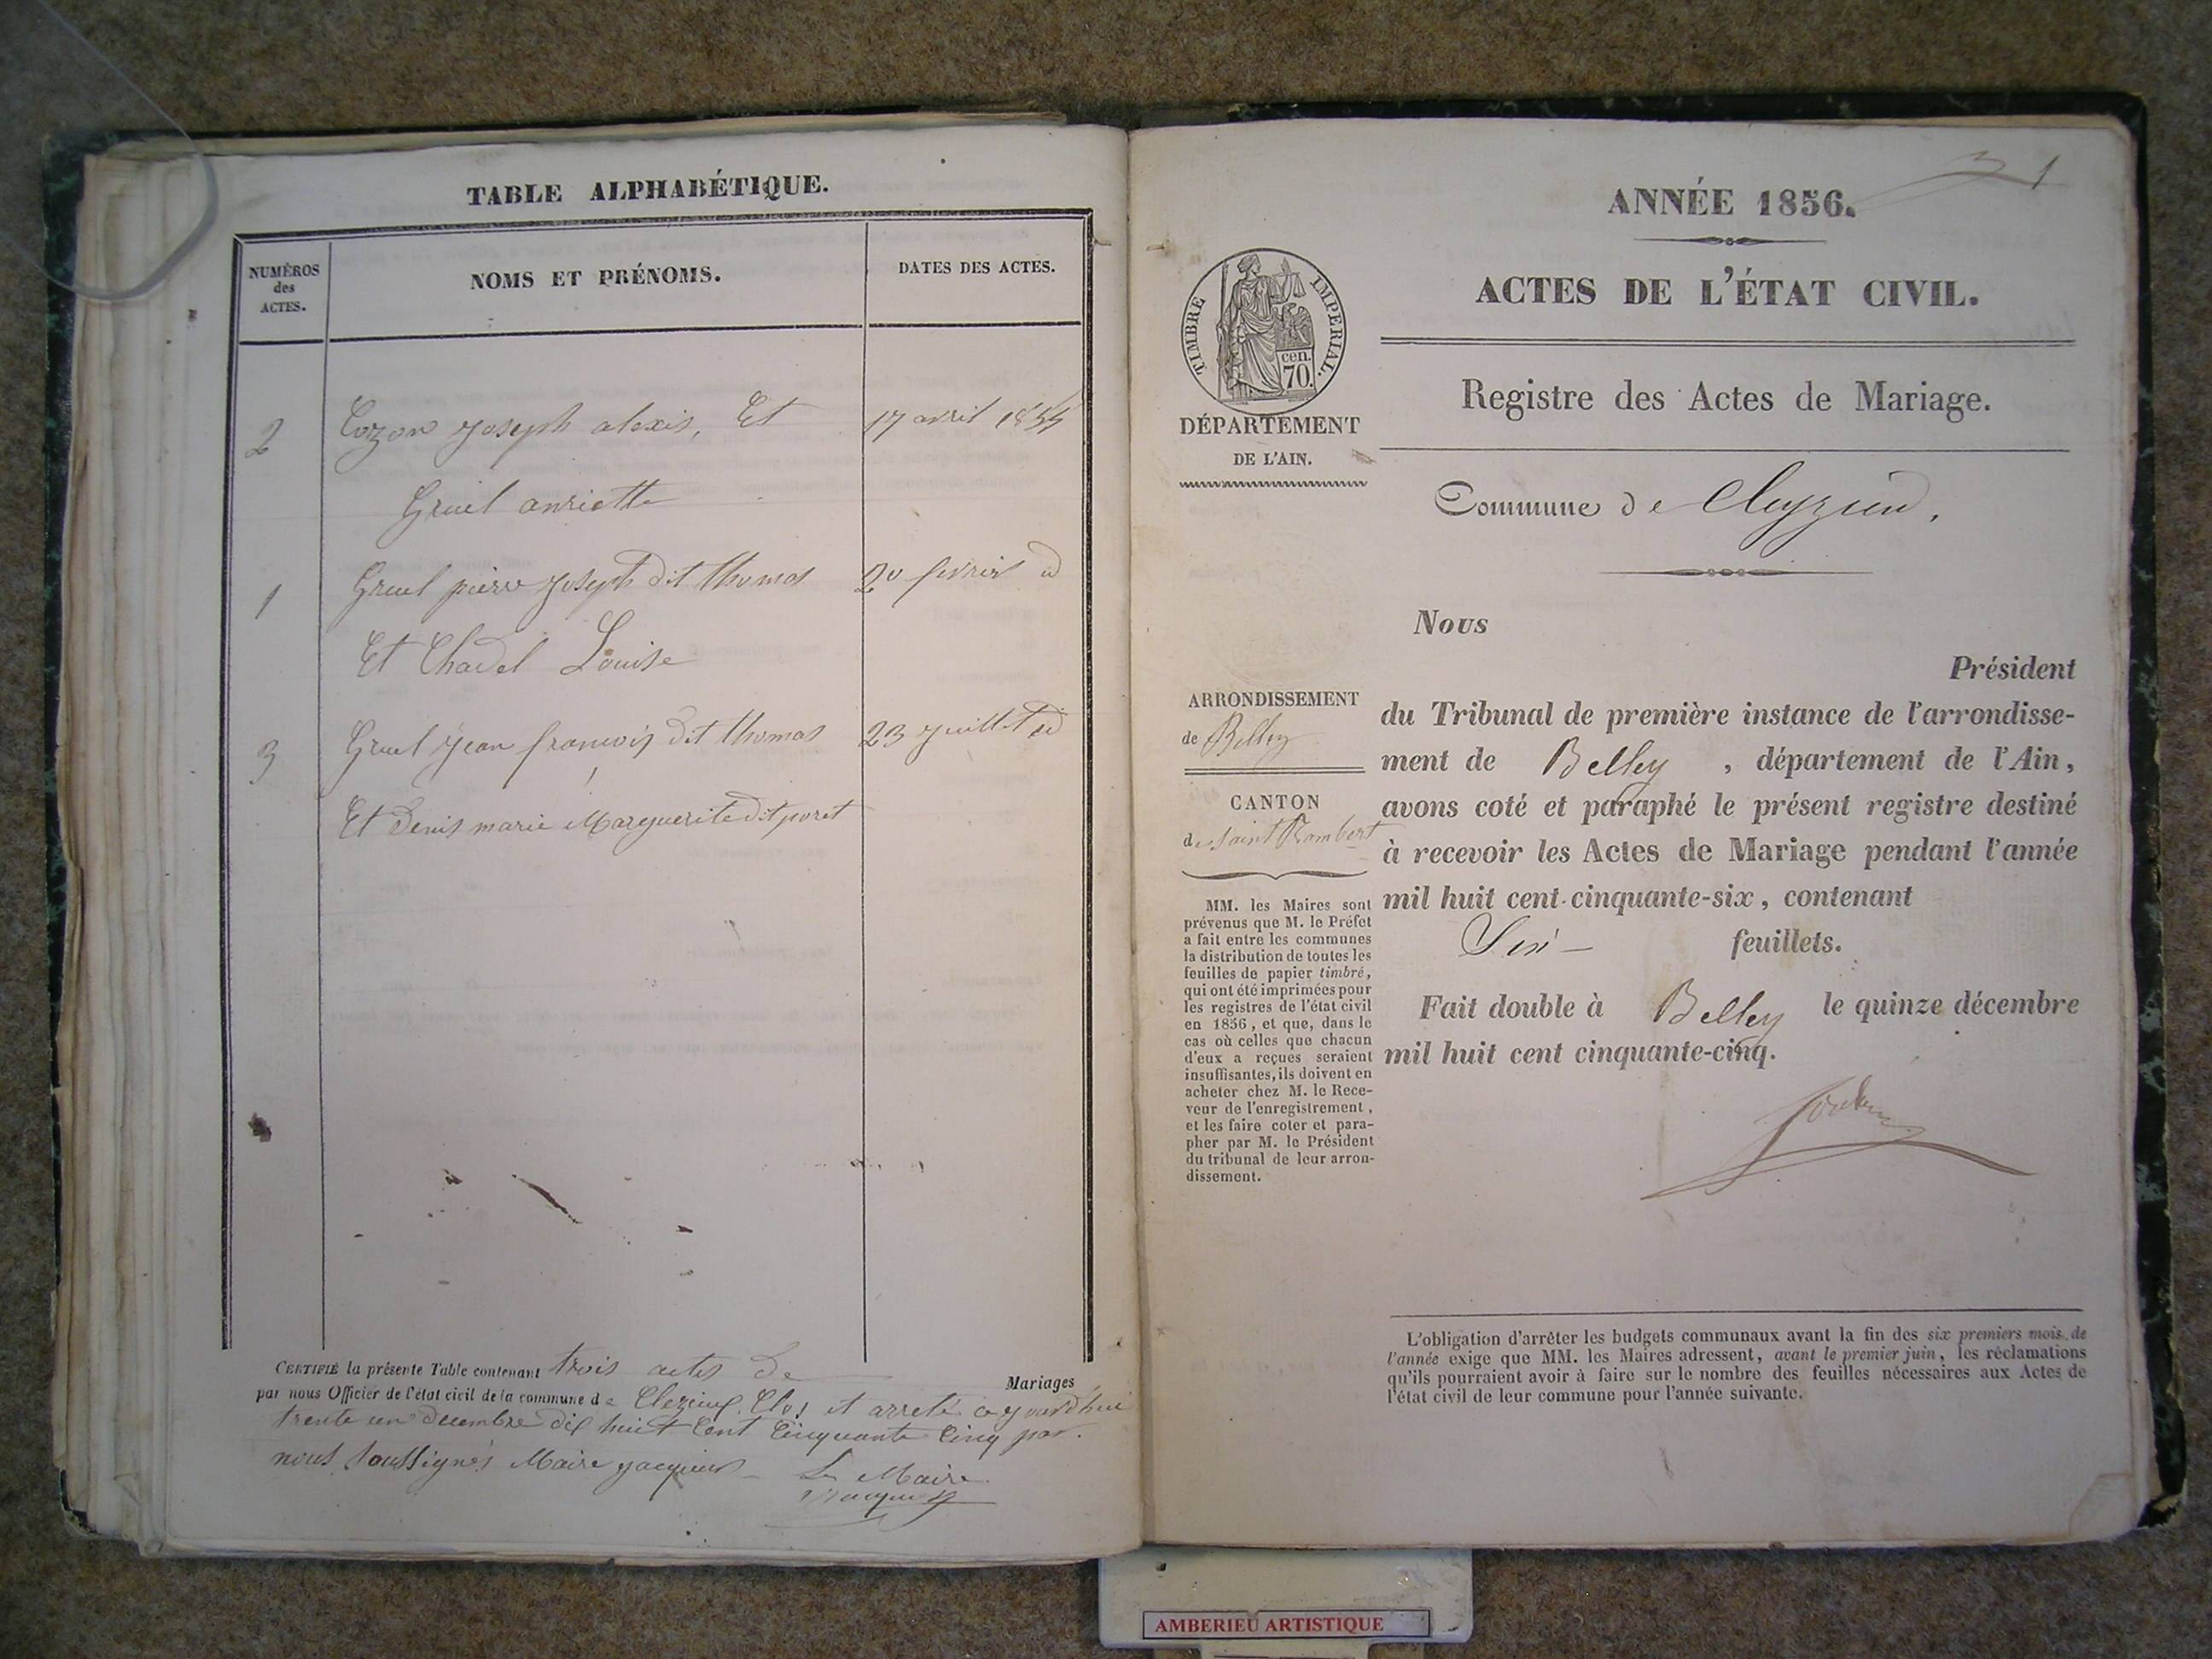 TABLE ALPHABÉTIQUE.
NUMÉROS
des
ACTES.
NOMS ET PRÉNOMS.
DATES DES ACTES.
2 Cozon Joseph alexis, Et 17 avril 1855
Gruel anriette
1 Gruel pierre Joseph dit thomas 20 fevrier id
Et Chadel Louise
3 Gruel jean francois dit thomas 23 juillet id
Et Denis marie Marguerite dit poret
CERTIFIÉ la présente Table contenant trois actes de Mariages
par nous Officier de l'état civil de la commune de Clezieux. Clos et arreté ce jourd'hui
trente un decembre dix huit Cent Cinquante Cinq par
nous soussignés Maire jacquier Le Maire
31
ANNÉE 1856.
ACTES DE L'ÉTAT CIVIL.
TIMBRE IMPERIAL.
cen.
70.
DÉPARTEMENT
DE L'AIN.
Registre des Actes de Mariage.
Commune de Cleyzieu,
Nous
Président
ARRONDISSEMENT
de Belley
CANTON
de saint Rambert
MM. les Maires sont
prévenus que M. le Préfet
a fait entre les communes
la distribution de toutes les
feuilles de papier timbré,
qui ont été imprimées pour
les registres de l'état civil
en 1856, et que, dans le
cas où celles que chacun
d'eux a reçues seraient
insuffisantes, ils doivent en
acheter chez M. le Rece-
veur de l'enregistrement,
et les faire coter et para-
pher par M. le Président
du tribunal de leur arron-
dissement.
du Tribunal de première instance de l'arrondisse-
ment de Belley, département de l'Ain,
avons coté et paraphé le présent registre destiné
à recevoir les Actes de Mariage pendant l'année
mil huit cent cinquante-six, contenant
Six feuillets.
Fait double à Belley le quinze décembre
mil huit cent cinquante-cinq.
L'obligation d'arrêter les budgets communaux avant la fin des six premiers mois de
l'année exige que MM. les Maires adressent, avant le premier juin, les réclamations
qu'ils pourraient avoir à faire sur le nombre des feuilles nécessaires aux Actes de
l'état civil de leur commune pour l'année suivante.
AMBERIEU ARTISTIQUE